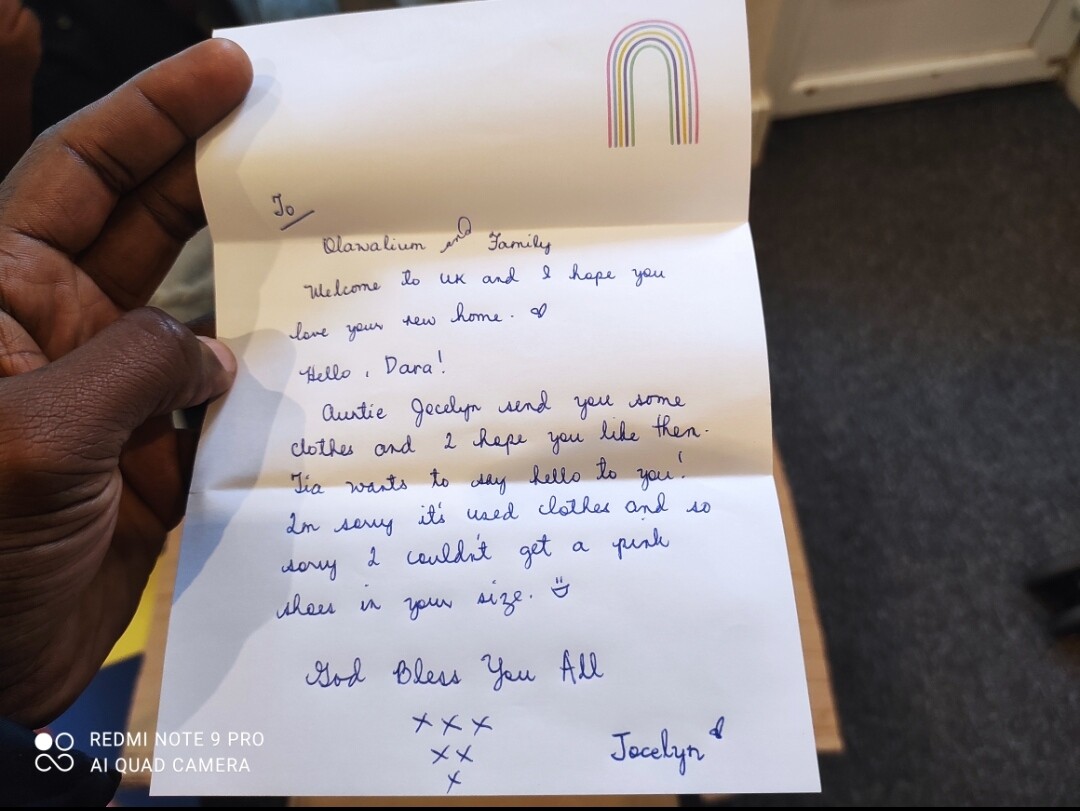 To
Olawalium and Family
Welcome to UK and I hope you
love your new home.
Hello, Dara!
Auntie Jocelyn send you some
clothes and I hope you like then.
Tia wants to say hello to you!
Im sorry it's used clothes and so
sorry I couldn't get a pink
shoes in your size.
God Bless You All
x x x
x x
x
Jocelyn
REDMI NOTE 9 PRO
AI QUAD CAMERA